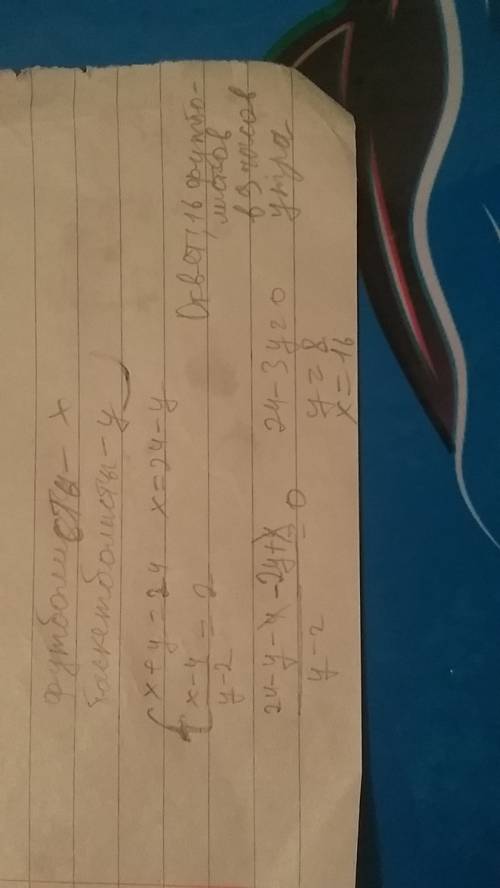 футболисты - x
баскетболисты - y
x + y = 24 x = 24 - y
x - 4 / y - 2 = 2
24 - y - 4 - 2y + 4 / y - 2 = 0
24 - 3y = 0
y = 8
x = 16
Ответ: 16 футбо-
листов
в 9 часов
утра